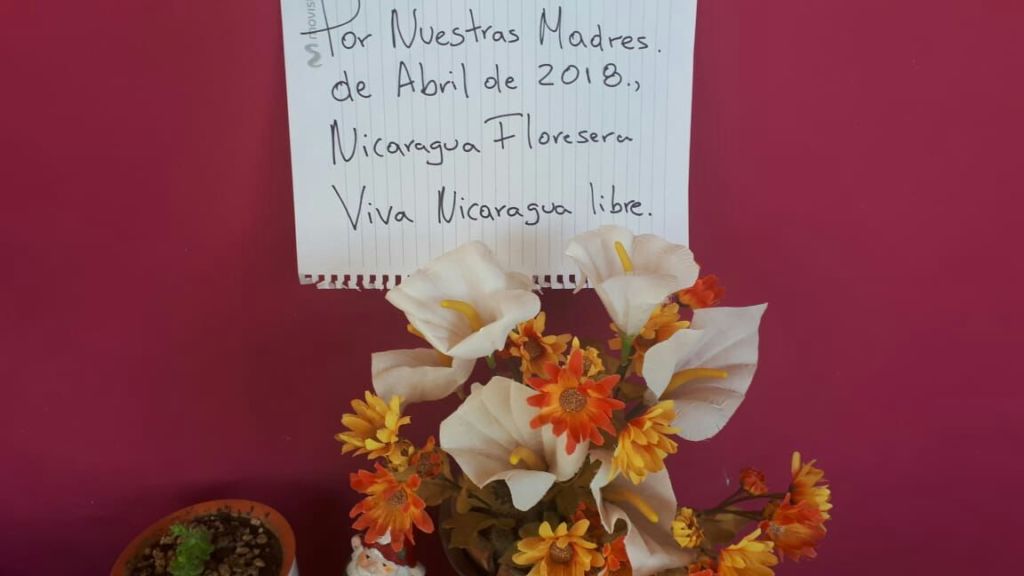 movis
Por Nuestras Madres.
de Abril de 2018.,
Nicaragua Floresera
Viva Nicaragua libre.